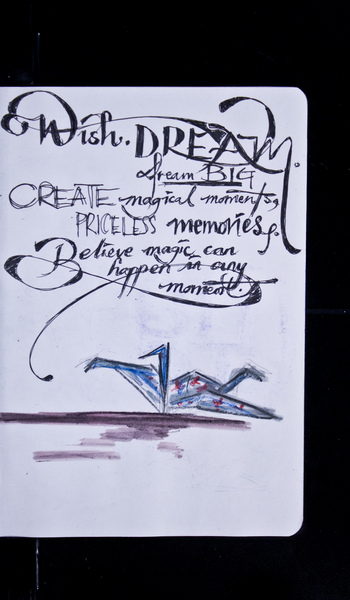 Wish. DREAM.
dream BIG
CREATE magical moments,
PRICELESS memories &.
Believe magic can
happen in any
moment.